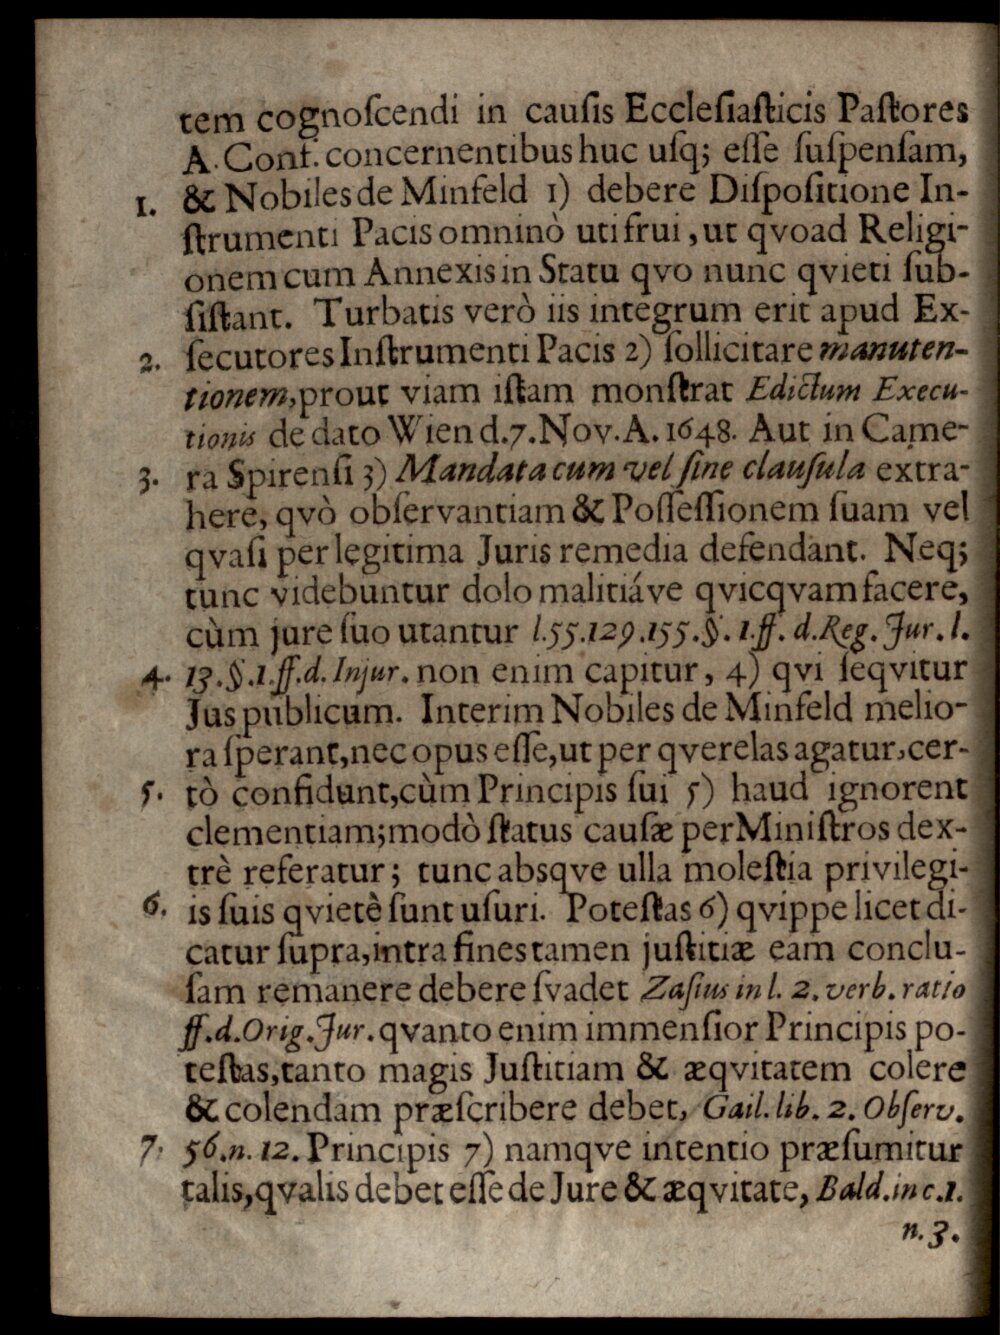 tem cognoſcendi in cauſis Eccleſiaſticis Paſtores
A. Conf. concernentibus huc uſq; eſſe ſuſpenſam,
1. & Nobiles de Minfeld 1) debere Diſpoſitione In-
ſtrumenti Pacis omninò uti frui, ut qvoad Religi-
onem cum Annexis in Statu qvo nunc qvieti ſub-
ſiſtant. Turbatis verò iis integrum erit apud Ex-
2. ſecutores Inſtrumenti Pacis 2) ſollicitare manuten-
tionem, prout viam iſtam monſtrat Edictum Execu-
tionis de dato Wien d. 7. Nov. A. 1648. Aut in Came-
3. ra Spirenſi 3) Mandata cum vel ſine clauſula extra-
here, qvò obſervantiam & Poſſeſſionem ſuam vel
qvaſi per legitima Juris remedia defendant. Neq;
tunc videbuntur dolo malitiáve qvicqvam facere,
cùm jure ſuo utantur l. 55. 129. 155. §. 1. ff. d. Reg. Jur. l.
4. 13. §. 1. ff. d. Injur. non enim capitur, 4) qvi ſeqvitur
Jus publicum. Interim Nobiles de Minfeld melio-
ra ſperant, nec opus eſſe, ut per qverelas agatur, cer-
5. tò confidunt, cùm Principis ſui 5) haud ignorent
clementiam; modò ſtatus cauſæ per Miniſtros dex-
trè referatur; tunc absqve ulla moleſtia privilegi-
6. is ſuis qvietè ſunt uſuri. Poteſtas 6) qvippe licet di-
catur ſupra, intra fines tamen juſtitiæ eam conclu-
ſam remanere debere ſvadet Zaſius in l. 2. verb. ratio
ff. d. Orig. Jur. qvanto enim immenſior Principis po-
teſtas, tanto magis Juſtitiam & æqvitatem colere
& colendam præſcribere debet, Gail. lib. 2. Obſerv.
7. 56. n. 12. Principis 7) namqve intentio præſumitur
talis, qvalis debet eſſe de Jure & æqvitate, Bald. in c. 1.
n. 3.